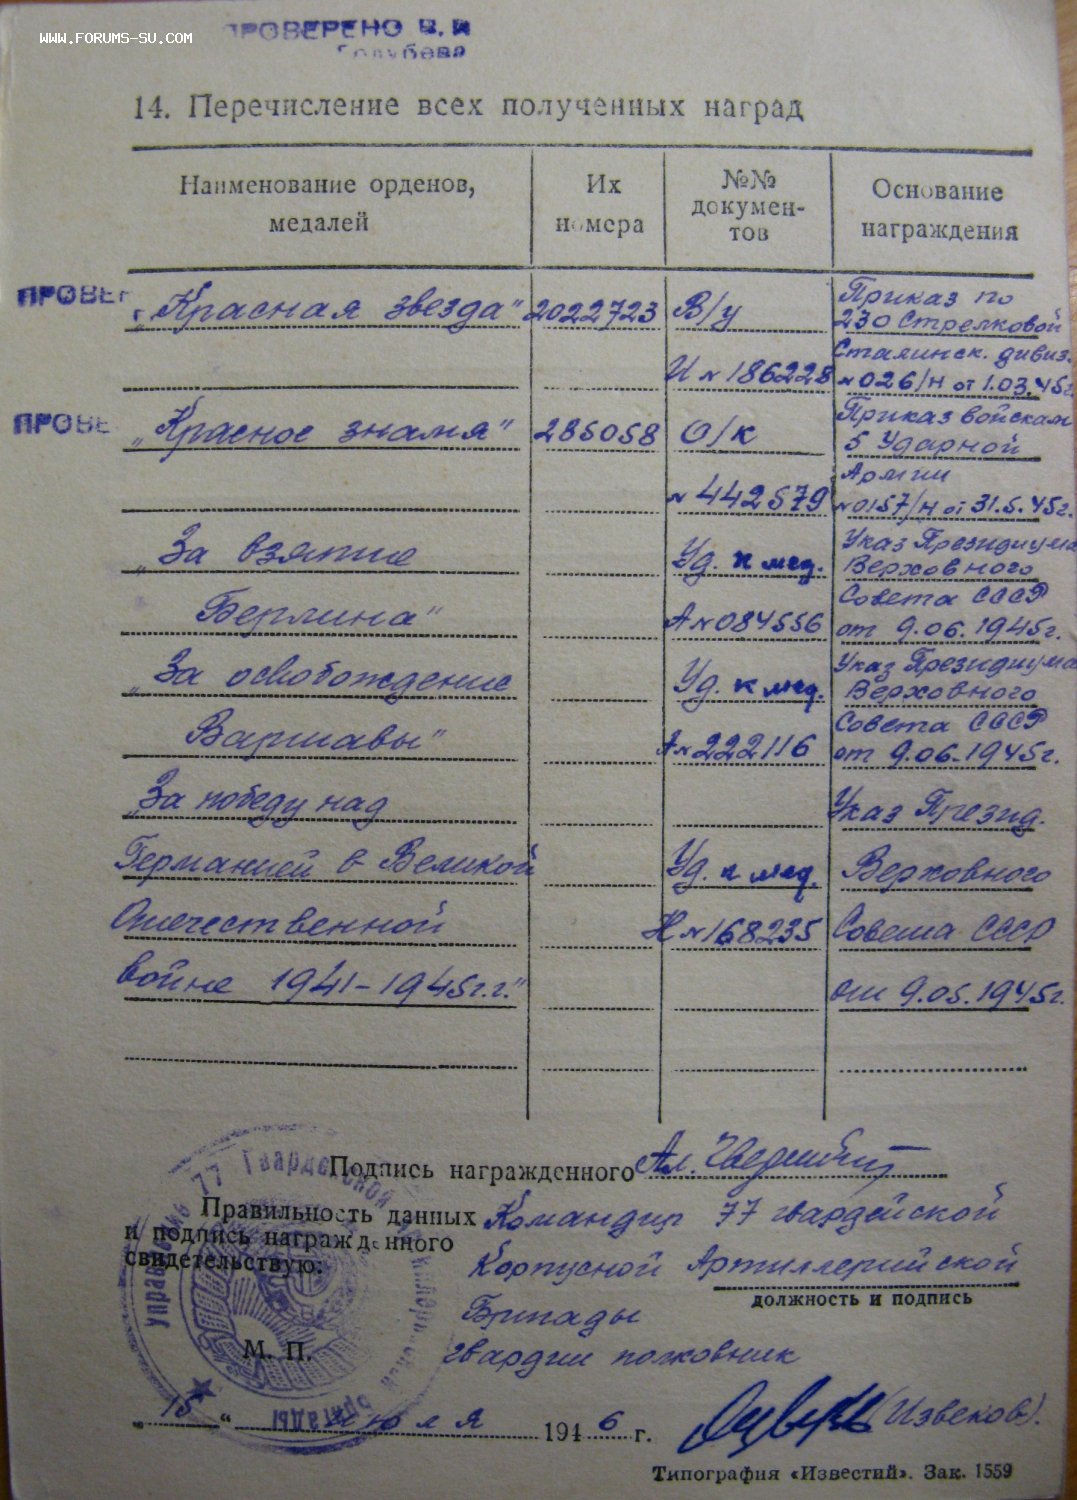 WWW.FORUMS-SU.COM
ПРОВЕРЕНО В. И
Голубева
14. Перечисление всех полученных наград
Наименование орденов, медалей
Их номера
№№ докумен-тов
Основание награждения
ПРОВЕР
„Красная звезда“ 2022723 В/у Приказ по
230 Стрелковой
И № 186228 Сталинск. дивиз.
№ 026/н от 1.03.45г
ПРОВЕ
„Красное знамя“ 285058 О/к Приказ войскам
5 Ударной
№ 442579 Армии
№ 0157/н от 31.5.45г.
„За взятие Уд. к мед. Указ Президиума
Верховного
Берлина“ А № 084556 Совета СССР
от 9.06.1945г.
„За освобождение Уд. к мед. Указ Президиума
Верховного
Варшавы“ А № 222116 Совета СССР
от 9.06.1945г.
„За победу над Указ Презид.
Германией в Великой Уд. к мед. Верховного
Отечественной Н № 168235 Совета СССР
войне 1941-1945г.г.“ от 9.05.1945г.
Подпись награжденного Ал.
Правильность данных и подпись награжденного свидетельствую:
Командир 77 гвардейской
Корпусной Артиллерийской
должность и подпись
Бригады
гвардии полковник
М. П.
Управление 77 Гвардейской бригады
„15“ июля 1946 г.
(Извеков).
Типография «Известий». Зак. 1559